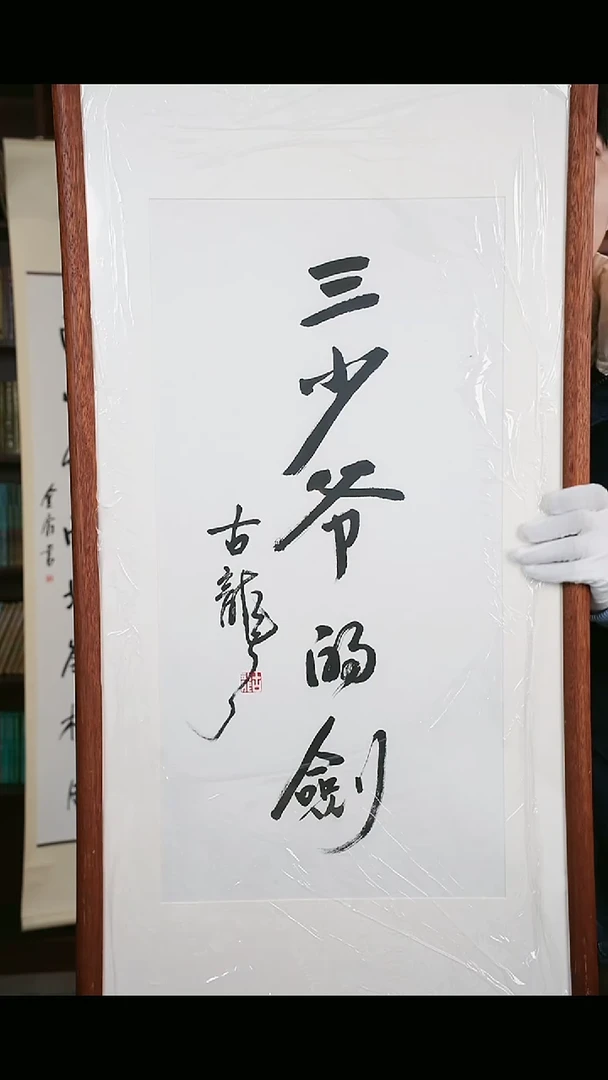 三少爷的劍
古龍
古龍
金庸書